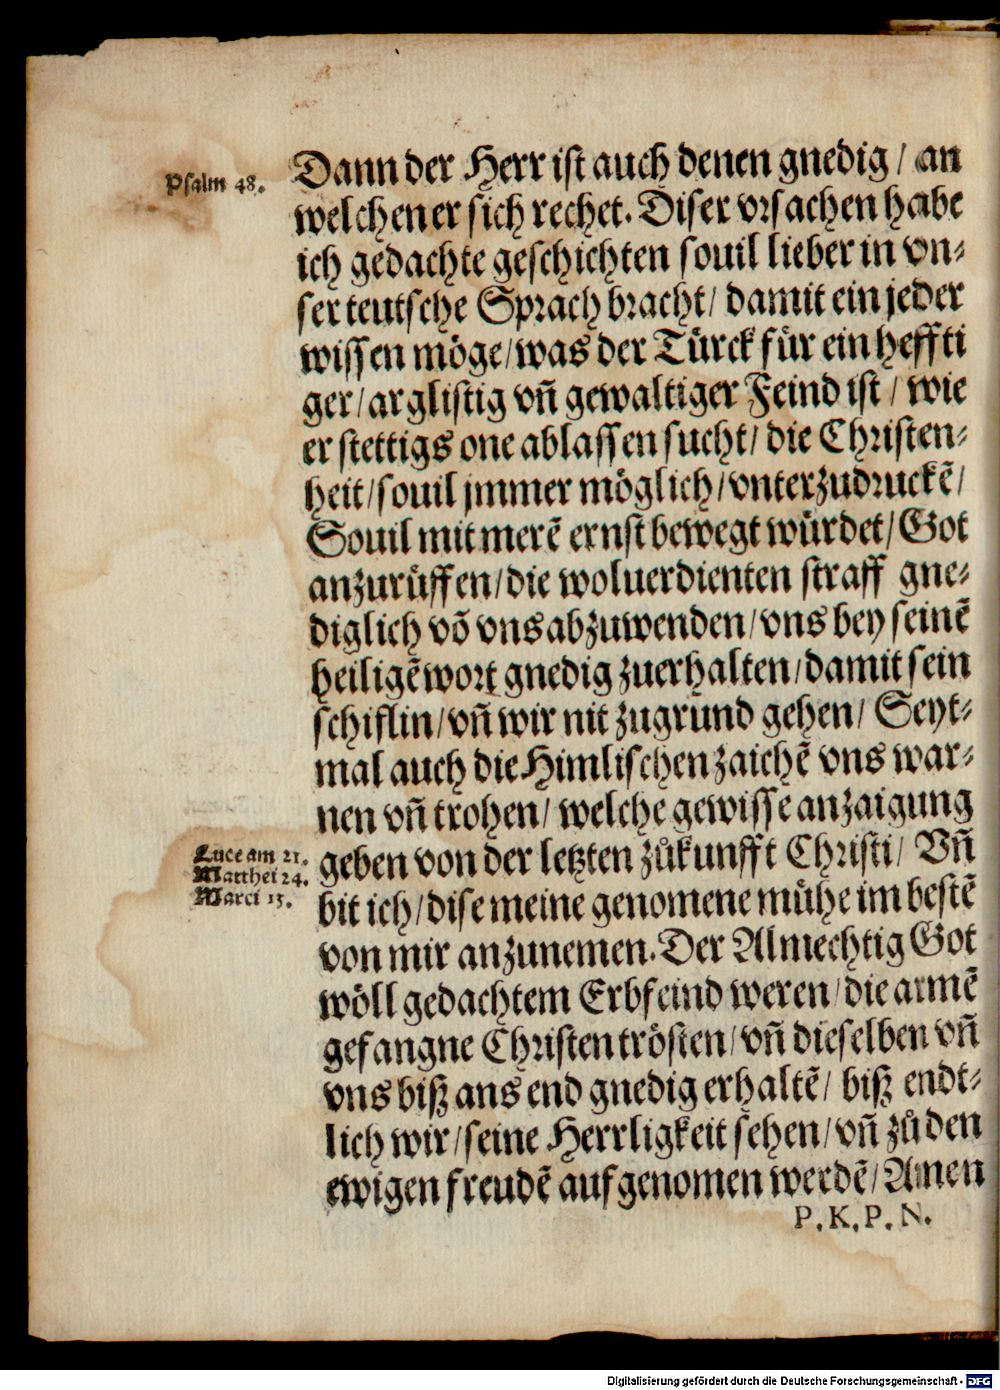 Psalm 48.
Dann der Herr ist auch denen gnedig / an
welchen er sich rechet. Diser vrsachen habe
ich gedachte geschichten souil lieber in vn-
ser teutsche Sprach bracht / damit ein jeder
wissen möge / was der Türck für ein heffti
ger / arglistig vn̄ gewaltiger Feind ist / wie
er stettigs one ablassen sucht / die Christen-
heit / souil jmmer möglich / vnterzudruckē /
Souil mit merē ernst bewegt würdet / Got
anzurůffen / die woluerdienten straff gne-
diglich vō vns abzuwenden / vns bey seinē
heiligē wort gnedig zuerhalten / damit sein
schiflin / vn̄ wir nit zugrund gehen / Seyt-
mal auch die Himlischen zaichē vns war-
nen vn̄ trohen / welche gewisse anzaigung
Luce am 21.
Matthei 24.
Marci 13.
geben von der letzten zůkunfft Christi / Vn̄
bit ich / dise meine genomene mühe im bestē
von mir anzunemen. Der Almechtig Got
wöll gedachtem Erbfeind weren / die armē
gefangne Christen trösten / vn̄ dieselben vn̄
vns biß ans end gnedig erhaltē / biß endt-
lich wir / seine Herrligkeit sehen / vn̄ zů den
ewigen freudē aufgenomen werdē / Amen
P. K. P. N.
Digitalisierung gefördert durch die Deutsche Forschungsgemeinschaft - DFG